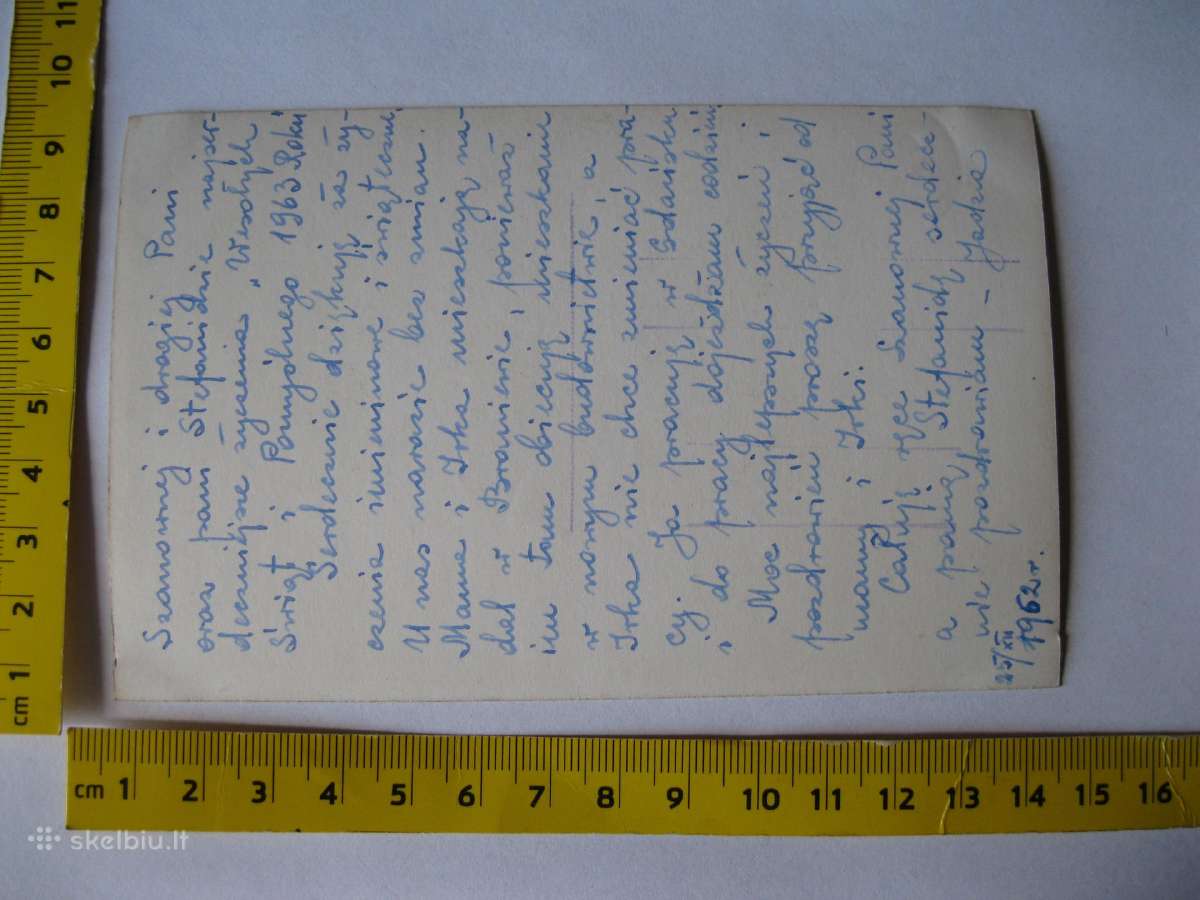 Szanownej i drogiej Pani
oraz pani Stefanidzie najser-
deczniejsze życzenia „Wesołych
Świąt i Pomyślnego 1963 Roku
Serdecznie dziękuję za ży-
czenia imieninowe i świąteczne
U nas narazie bez zmian.
Mama i Irka mieszkają na-
dal w Braniewie, ponieważ
im tam obiecują mieszkanie
w nowym budownictwie, a
Irka nie chce zmieniać pra-
cy. Ja pracuję w Gdańsku
i do pracy dojeżdżam codzień
Moc najlepszych życzeń i
pozdrowień proszę przyjąć od
mamy i Irki.
Całuję ręce Szanownej Pani
a panią Stefanidę serdecz-
nie pozdrawiam - Jadzia
25/XII
1962 r.
cm 1 2 3 4 5 6 7 8 9 10 11
cm 1 2 3 4 5 6 7 8 9 10 11 12 13 14 15 16
skelbiu.lt